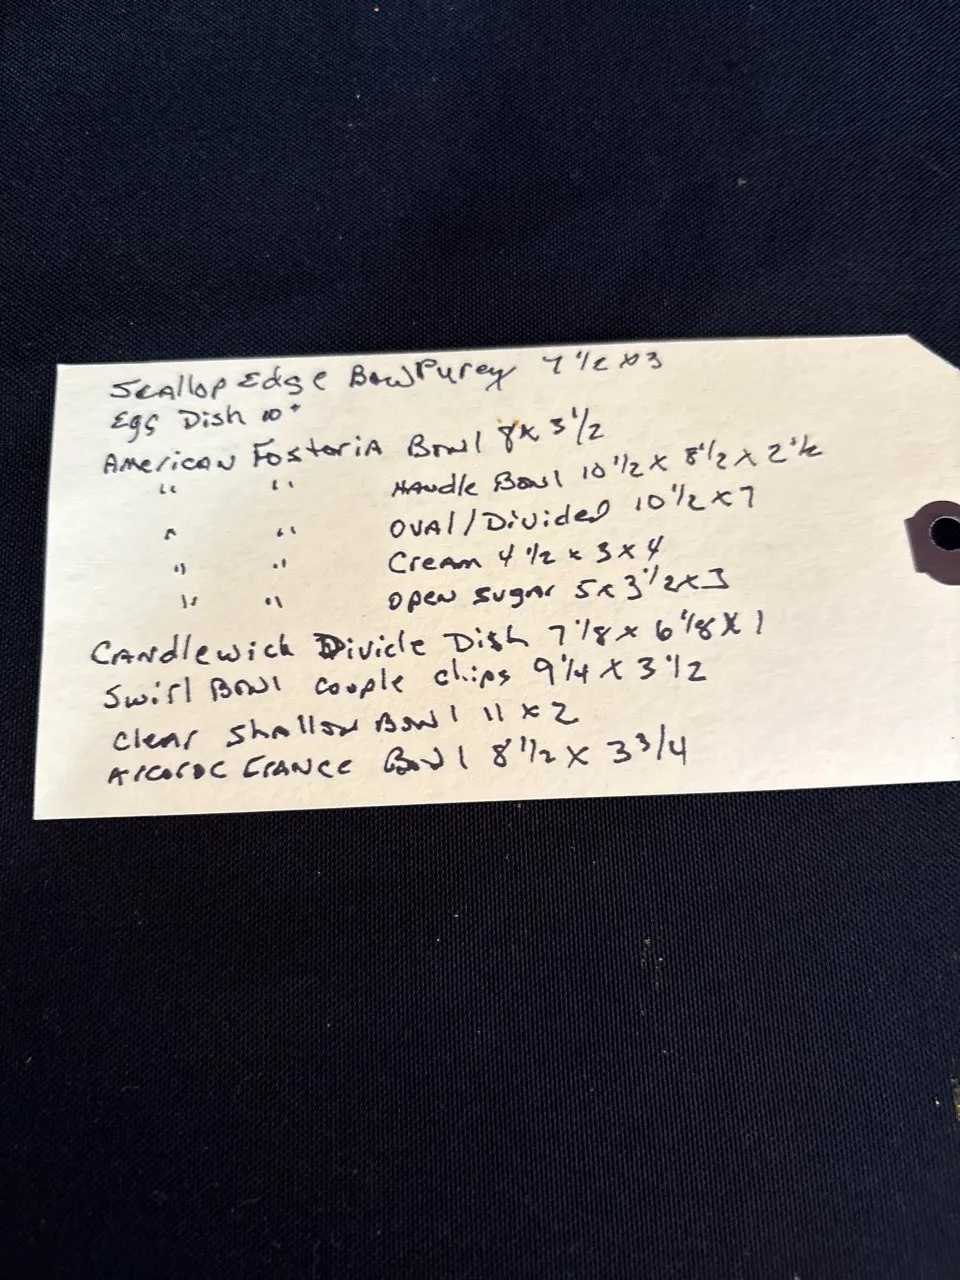 Scallop Edge Bowl Purey 7 1/2 x 3
Egg Dish 10"
American Fostoria Bowl 8 x 3 1/2
" " Handle Bowl 10 1/2 x 8 1/2 x 2 1/2
" " Oval/Divided 10 1/2 x 7
" " Cream 4 1/2 x 3 x 4
" " open sugar 5 x 3 1/2 x 3
Candlewick Divide Dish 7 1/8 x 6 1/8 x 1
Swirl Bowl couple chips 9 1/4 x 3 1/2
clear shallow Bowl 11 x 2
Arcoroc France Bowl 8 1/2 x 3 3/4